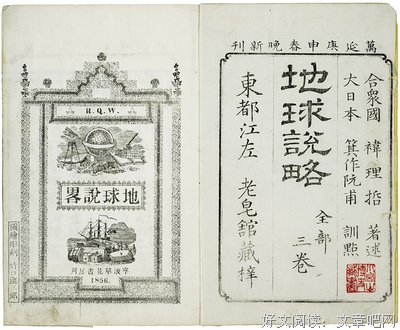 萬延庚申春晚新刊
合衆國 褘理哲 著述
大日本 箕作阮甫 訓點
地球說略 全部 三卷
東都江左 老皂館藏梓
R.Q.W.
地球說畧
寧波華花書房刊
1856.
好文阅读：文章吧网